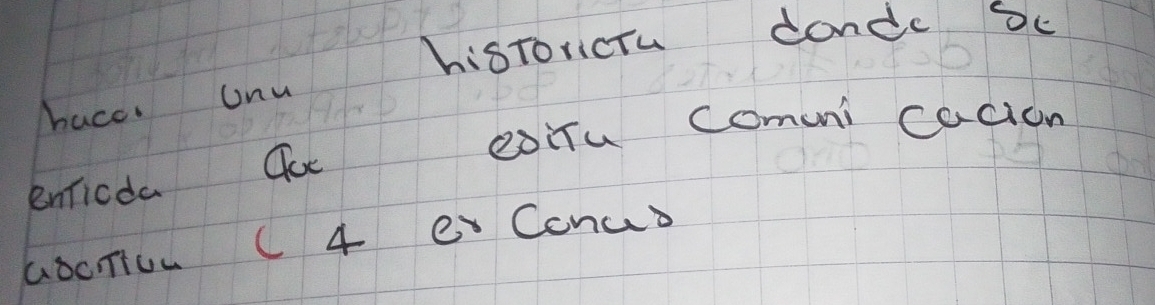 hacer una historicta donde se
entieda que exita comuni cacion
asertiva (4 excenas